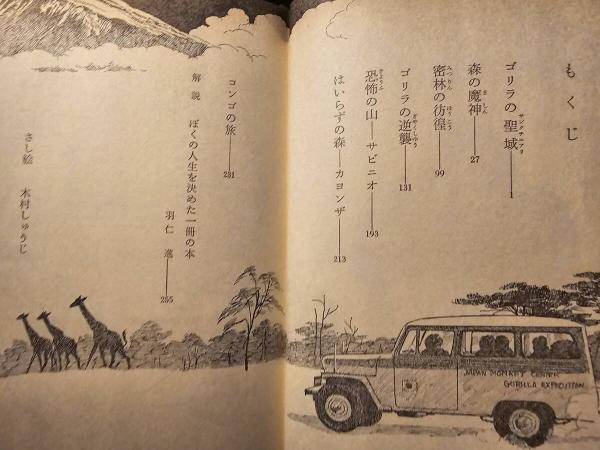 もくじ
ゴリラの聖域 1
森の魔神 27
密林の彷徨 99
ゴリラの逆襲 131
恐怖の山――サビニオ 193
はいらずの森――カヨンザ 213
コンゴの旅 231
解説 ぼくの人生を決めた一冊の本
羽仁 進 255
さし絵 木村しゅうじ
JAPAN MONKEY CENTER
GORILLA EXPEDITION